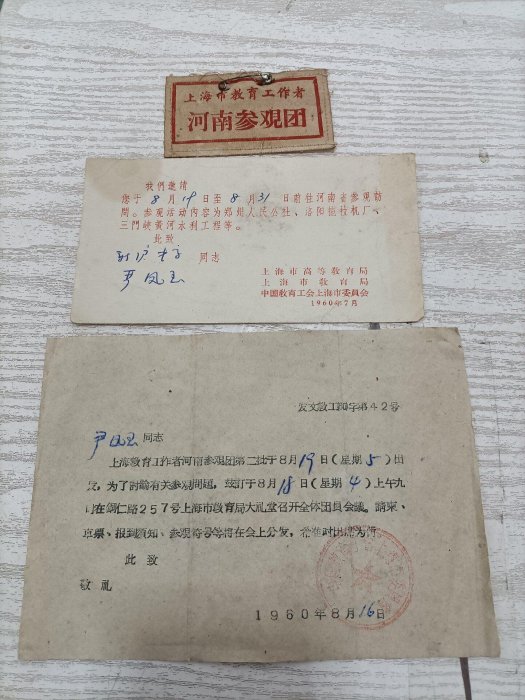 上海市教育工作者
河南参观团
我們邀請
您于8月19日至8月31日前往河南省参观訪
問。参观活动内容为郑州人民公社、洛阳拖拉机厂、
三門峡黄河水利工程等。
此致
同志
尹凤玉
上海市高等教育局
上海市教育局
中国教育工会上海市委員会
1960年7月
发文教工第42号
尹凤玉同志
上海教育工作者河南参观团第二批于8月19日(星期5)出
发,为了討論有关参观問題,茲訂于8月18日(星期4)上午九
时在銅仁路257号上海市教育局大礼堂召开全体团員会議。請柬、
車票、报到須知、参观符号等将在会上分发,希准时出席为荷
此致
敬礼
1960年8月16日